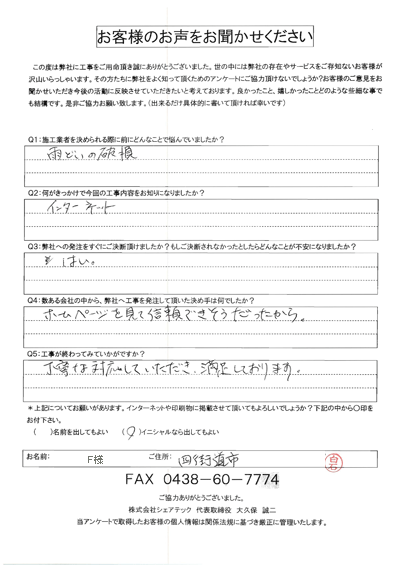 お客様のお声をお聞かせください
この度は弊社に工事をご用命頂き誠にありがとうございました。世の中には弊社の存在やサービスをご存知ないお客様が
沢山いらっしゃいます。その方たちに弊社をよく知って頂くためのアンケートにご協力頂けないでしょうか？お客様のご意見をお
聞かせいただき今後の活動に反映させていただきたいと考えております。良かったこと、嬉しかったことどのような些細な事で
も結構です。是非ご協力お願い致します。（出来るだけ具体的に書いて頂ければ幸いです）
Q1：施工業者を決められる際に前にどんなことで悩んでいましたか？
雨どいの破損
Q2：何がきっかけで今回の工事内容をお知りになりましたか？
インターネット
Q3：弊社への発注をすぐにご決断頂けましたか？もしご決断されなかったとしたらどんなことが不安になりましたか？
はい。
Q4：数ある会社の中から、弊社へ工事を発注して頂いた決め手は何でしたか？
ホームページを見て信頼できそうだったから。
Q5：工事が終わってみていかがですか？
丁寧な対応していただき、満足しております。
＊上記についてお願いがあります。インターネットや印刷物に掲載させて頂いてもよろしいでしょうか？下記の中から〇印を
お付下さい。
（　）名前を出してもよい （〇）イニシャルなら出してもよい
お名前： F様 ご住所： 四街道市
FAX 0438-60-7774
ご協力ありがとうございました。
株式会社シェアテック 代表取締役 大久保 誠二
当アンケートで取得したお客様の個人情報は関係法規に基づき厳正に管理いたします。